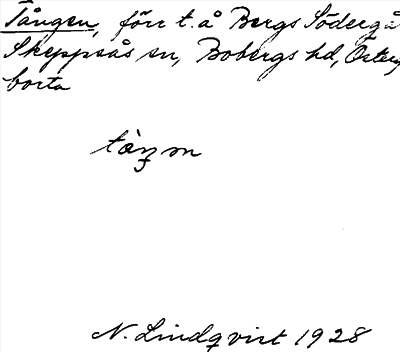 Tången, förr t. å Bergs Södergå
Skeppsås sn, Bobergs hd, Österg,
borta
tàŋ̣ m
N. Lindqvist 1928